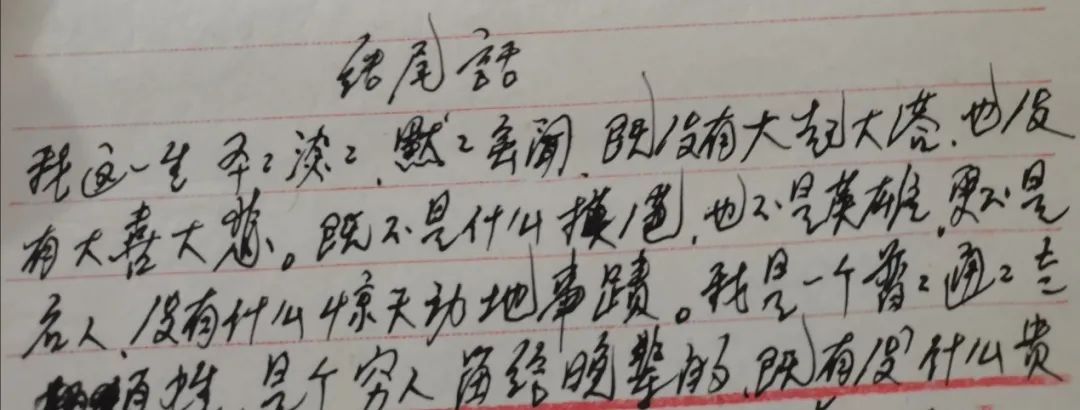 结尾语
我这一生平〻淡〻,默〻无闻,既没有大起大落,也没
有大喜大悲。既不是什么模范,也不是英雄,更不是
名人,没有什么惊天动地事蹟。我是一个普〻通〻
百姓,是个穷人留给晚辈的,既有没什么贵